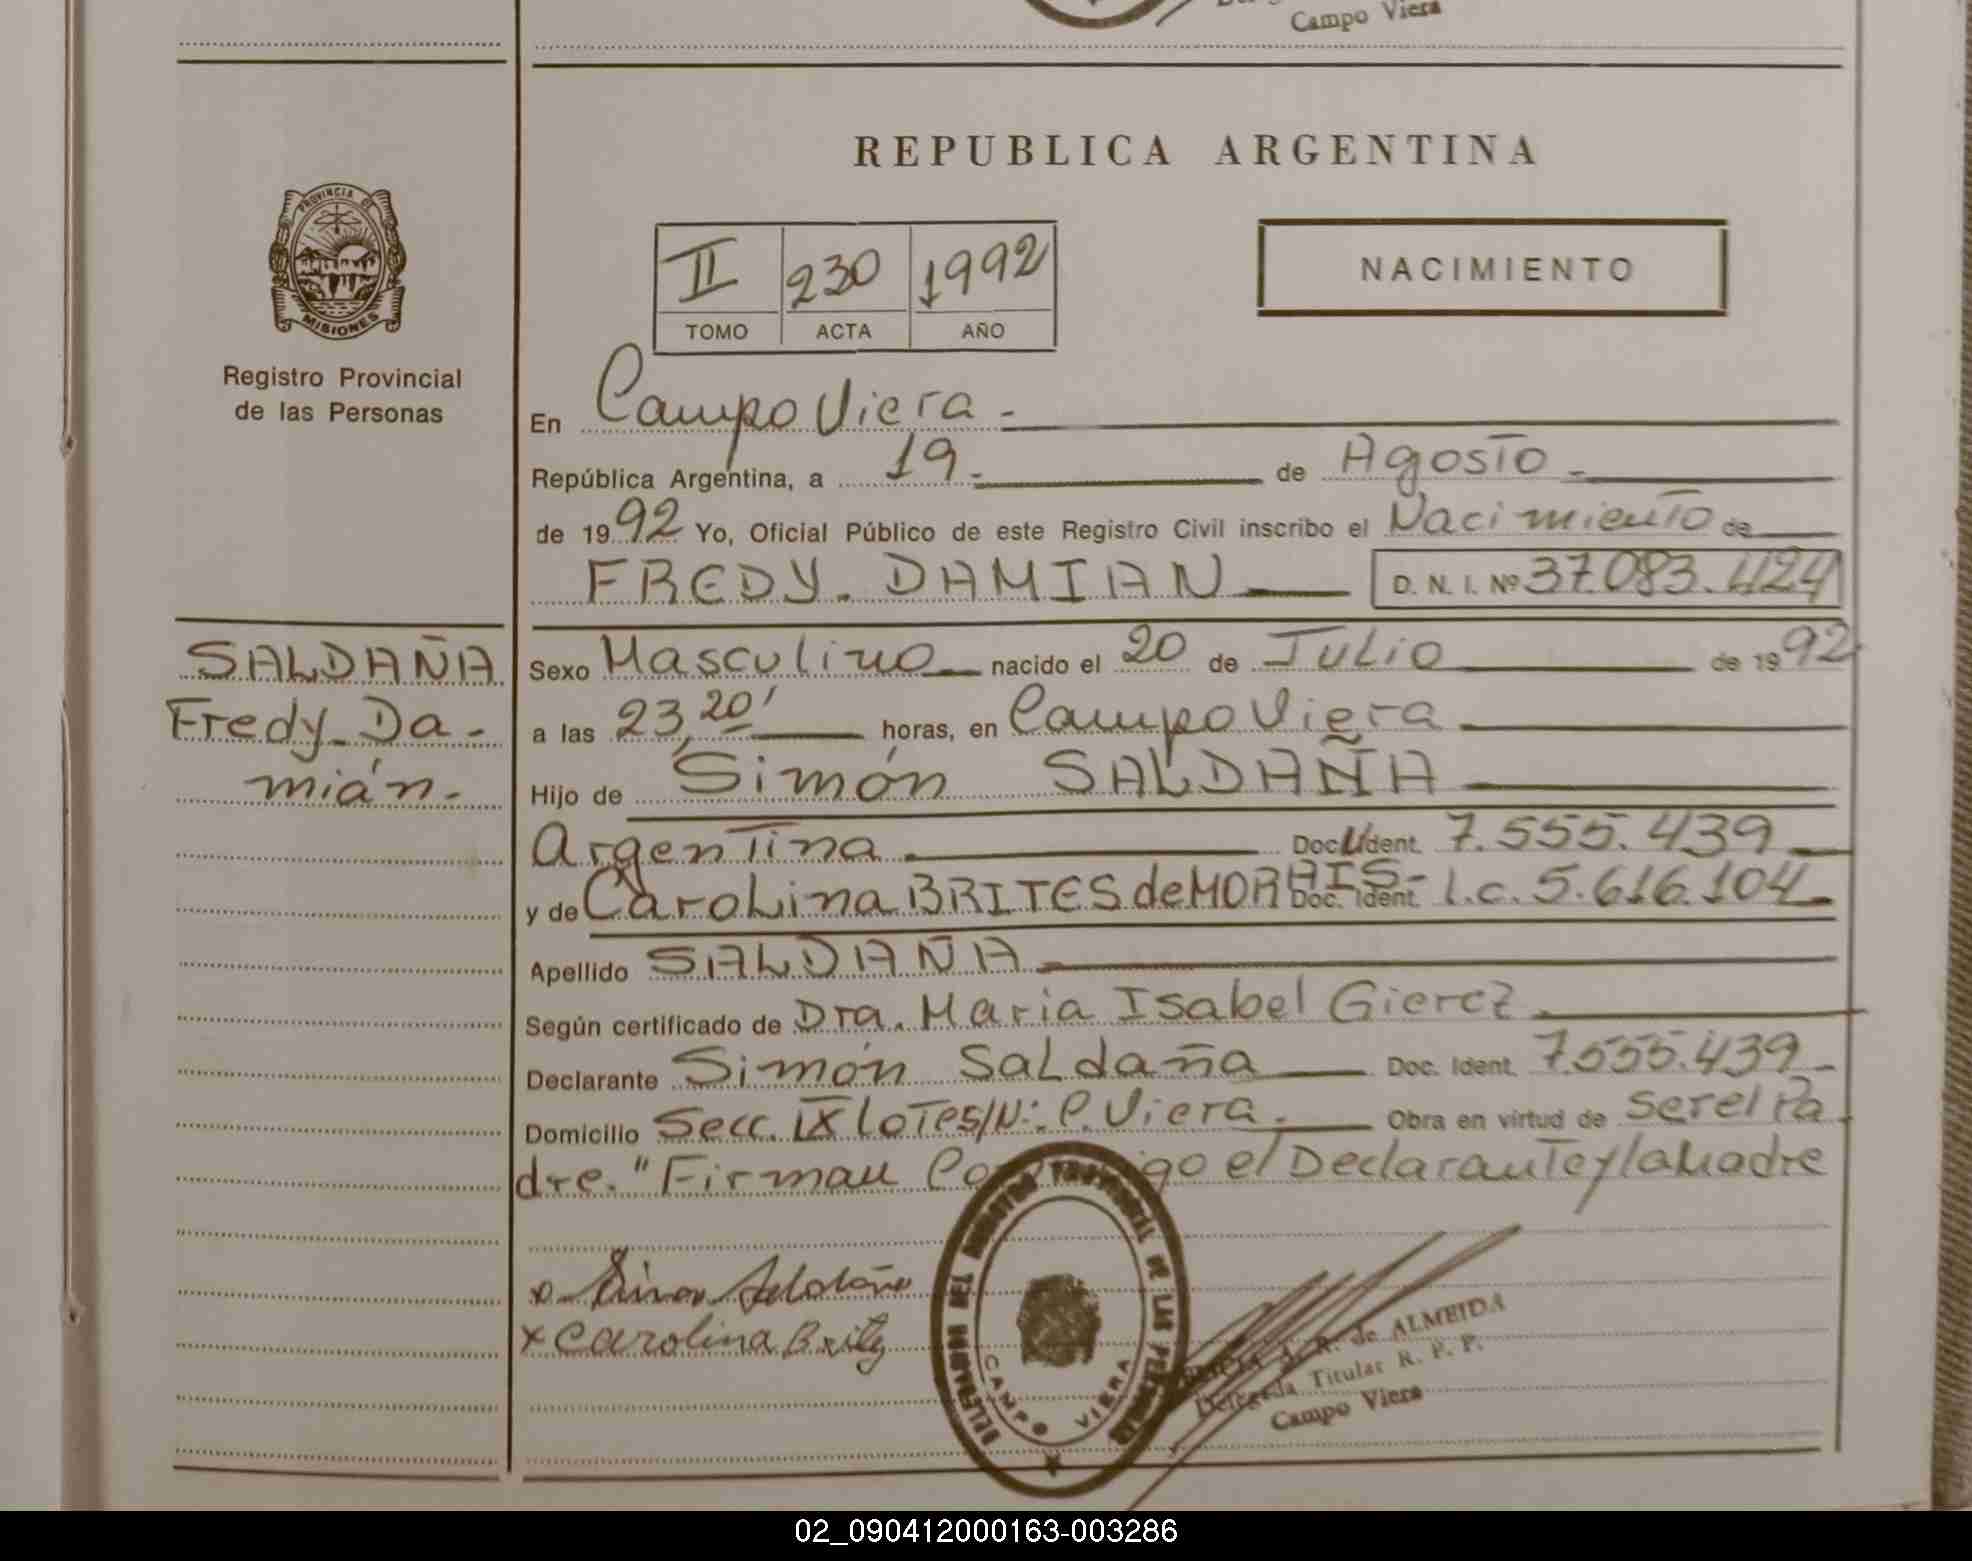 Campo Viera
REPUBLICA ARGENTINA
PROVINCIA DE
MISIONES
Registro Provincial
de las Personas
II 230 1992
TOMO ACTA AÑO
NACIMIENTO
En Campo Viera -
República Argentina, a 19.- de Agosto -
de 1992 Yo, Oficial Público de este Registro Civil inscribo el Nacimiento de
FREDY. DAMIAN D. N. I. Nº 37.083.424
SALDAÑA
Fredy Da-
mián.-
Sexo Masculino nacido el 20 de Julio de 1992
a las 23,20' horas, en Campo Viera
Hijo de Simón SALDAÑA
Argentina Doc. Ident. 7.555.439
y de Carolina BRITES de MORAIS- Doc. Ident. L.c. 5.616.104-
Apellido SALDAÑA
Según certificado de Dra. Maria Isabel Gierez
Declarante Simón Saldaña Doc. Ident. 7.555.439-
Domicilio Secc. IX Lote s/N:. C. Viera. Obra en virtud de ser el Pa
dre. "Firman Conmigo el Declarante y la Madre
Carolina Britz
DELEGACION DEL REGISTRO PROVINCIAL DE LAS PERSONAS
CAMPO VIERA
R. de ALMEIDA
Delegada Titular R. P. P.
Campo Viera
02_090412000163-003286